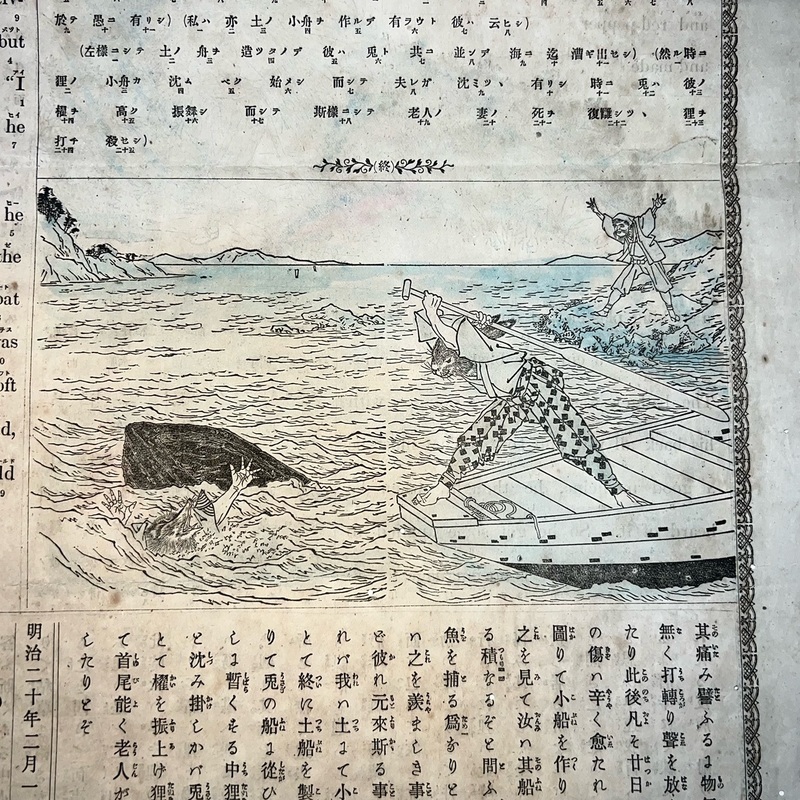 but
"I
he
he
the
oat
vas
oft
d,
ld
於テ 愚ニ 有リシ) (私ハ 亦 土ノ 小舟ヲ 作ルデ 有ラウト 彼ハ 云ヒシ)
(左様ニシテ 土ノ 舟ヲ 造ツタノデ 彼ハ 兎ト 共ニ 並ンデ 海ニ 迄 漕ギ出セシ) (然ル時ニ
狸ノ 小舟カ 沈ム ベク 始メシ 而シテ 夫レガ 沈ミツヽ 有リシ 時ニ 兎ハ 彼ノ
櫂ヲ 高ク 而シテ 斯様ニシテ 老人ノ 妻ノ 死ヲ 復讐シツヽ 狸ヲ
打チ 殺セシ)
(終)
其痛み譬ふるよ物
無く打轉り聲を放
たり此後凡そ廿日
の傷ハ辛く愈たれ
圖りて小船を作り
之を見て汝ハ其船
る積なるぞと問ふ
魚を捕る爲なりと
ハ之を羨ましき事
ど彼れ元來斯る事
れバ我ハ土よて小
とて終に土船を製
りて兎の船よ從ひ
しよ暫くする中狸
と沈み掛しかバ兎
とて櫂を振上げ狸
て首尾能く老人が
したりとぞ
明治二十年二月一